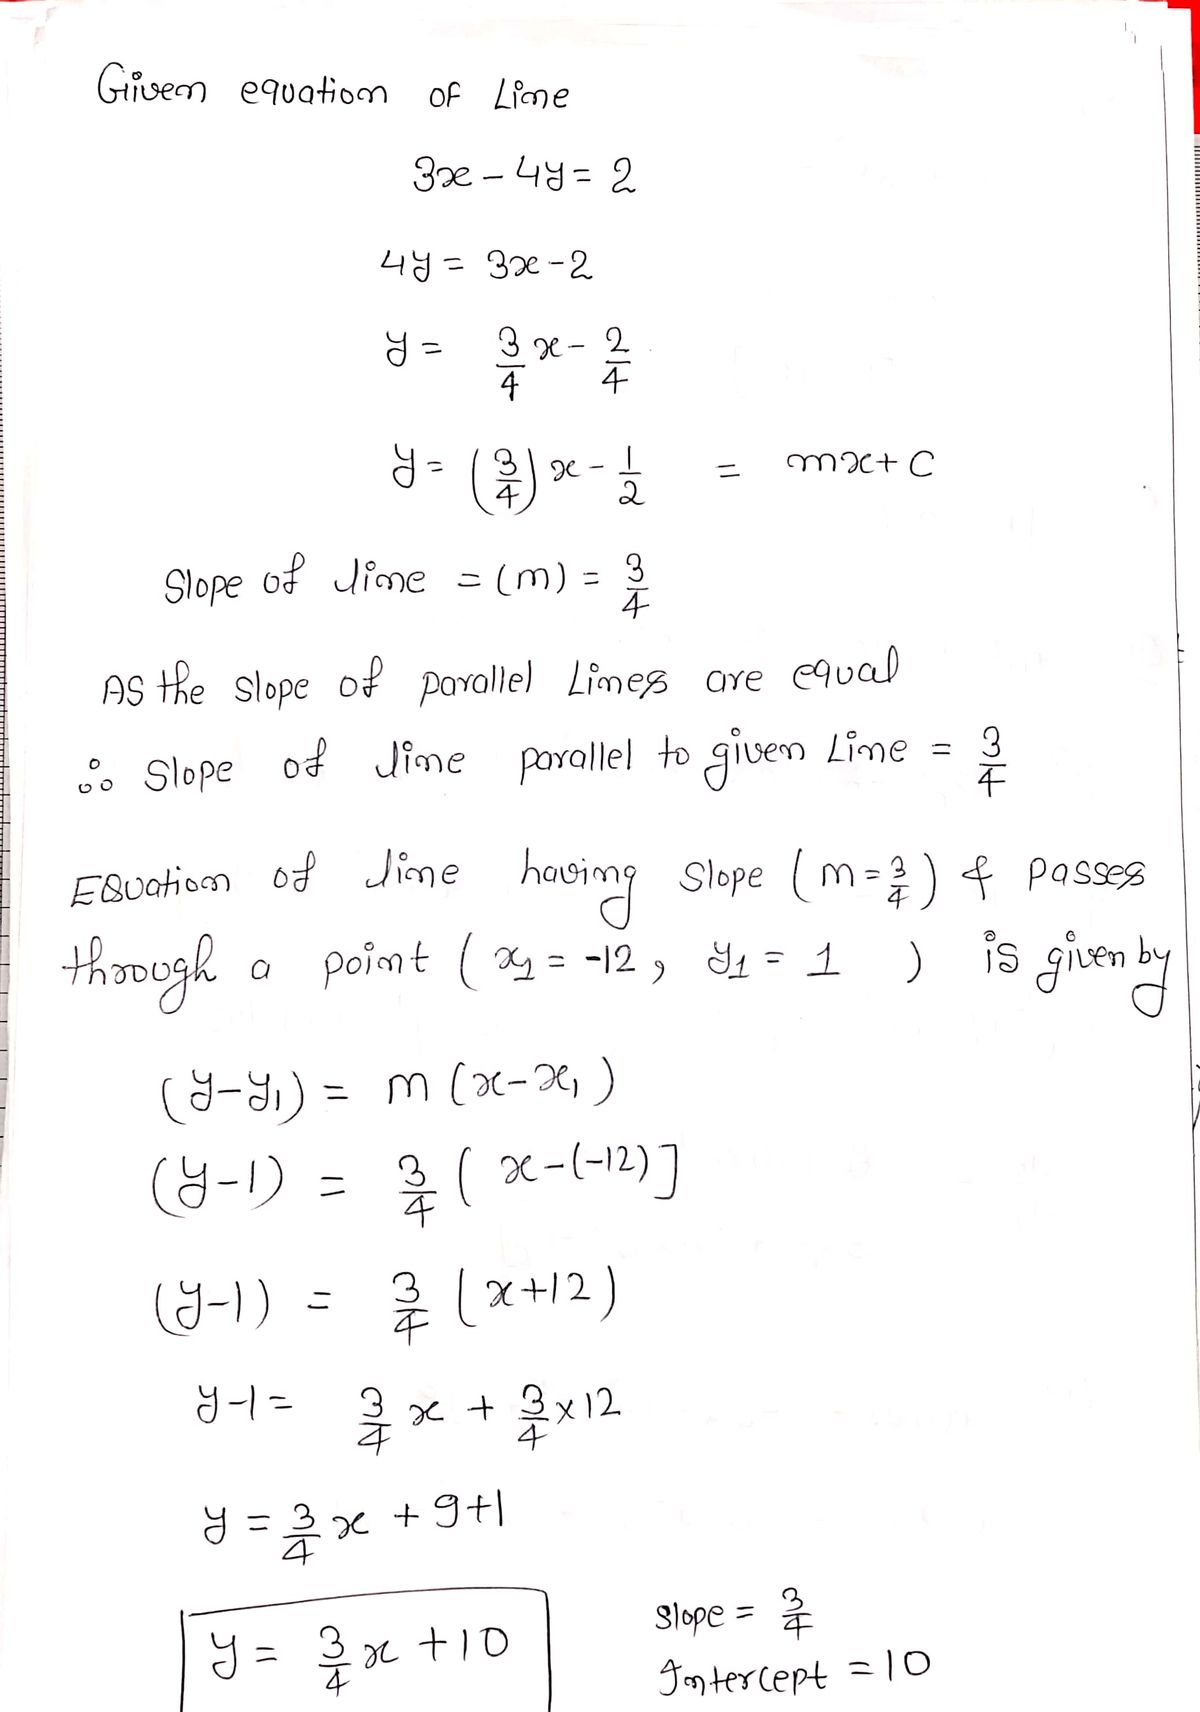 Given equation of Line
3x - 4y = 2
4y = 3x - 2
y = 3/4 x - 2/4
y = (3/4) x - 1/2 = mx + C
Slope of line = (m) = 3/4
As the slope of parallel Lines are equal
∴ Slope of line parallel to given Line = 3/4
Equation of line having slope (m = 3/4) & passes
through a point ( x1 = -12, y1 = 1 ) is given by
(y - y1) = m (x - x1)
(y - 1) = 3/4 ( x - (-12) ]
(y - 1) = 3/4 (x + 12)
y - 1 = 3/4 x + 3/4 × 12
y = 3/4 x + 9 + 1
y = 3/4 x + 10
Slope = 3/4
Intercept = 10